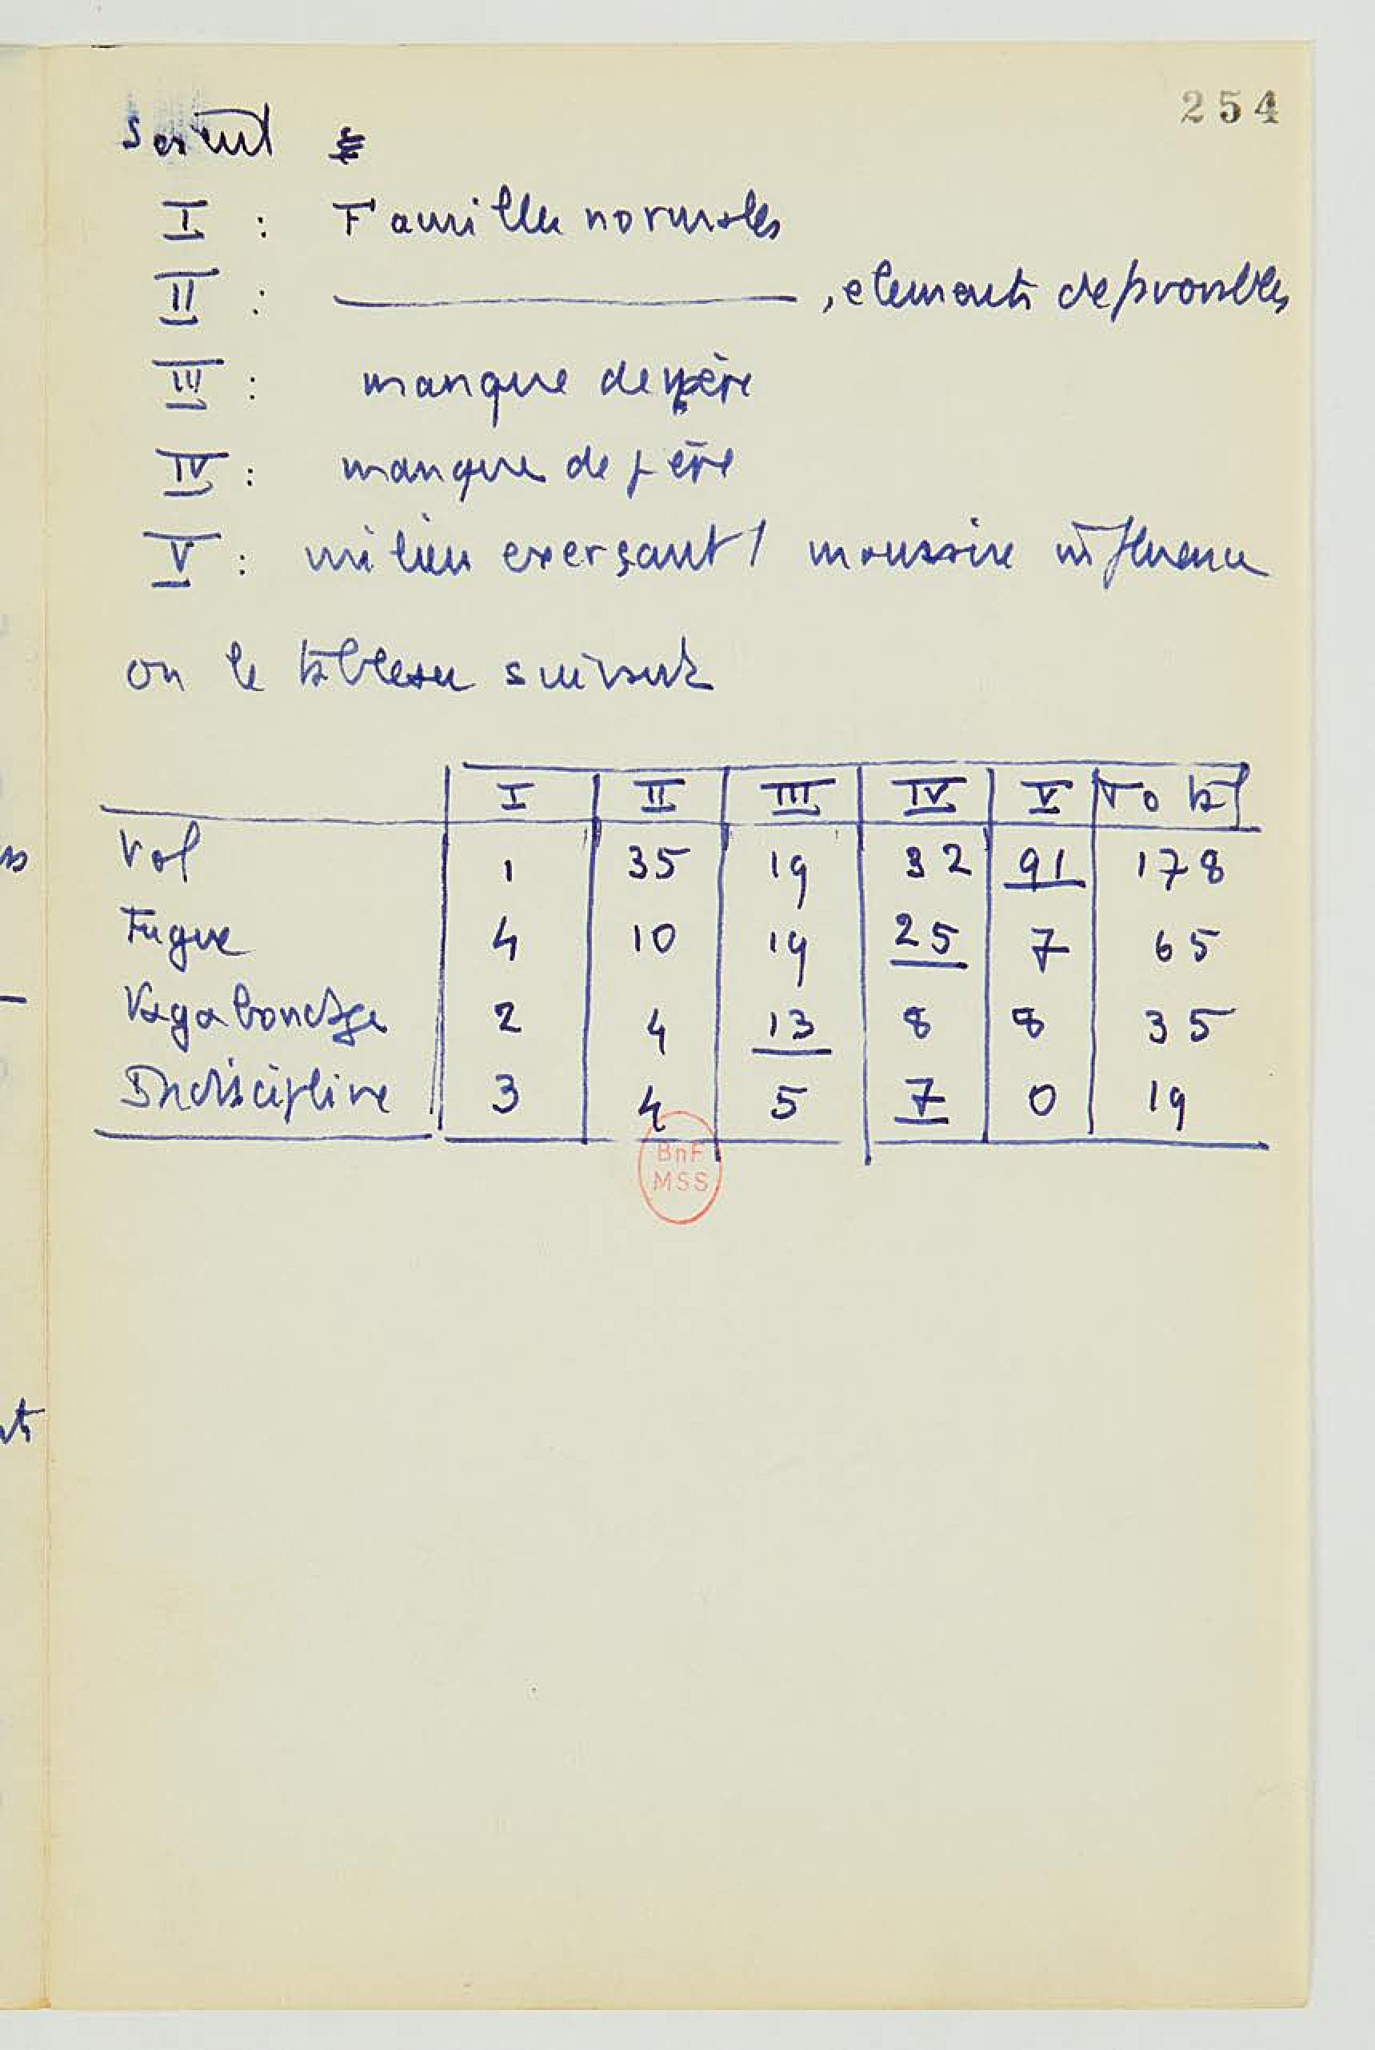 254
Soient
I : Familles normales
II : ———————— , elements deplorables
III : manque de mère
IV : manque de père
V : milieu exerçant 1 mauvaise influence
on le tableau suivant
I II III IV V Total
Vol 1 35 19 32 91 178
Fugue 4 10 19 25 7 65
Vagabondage 2 4 13 8 8 35
Indiscipline 3 4 5 7 0 19
BnF
MSS